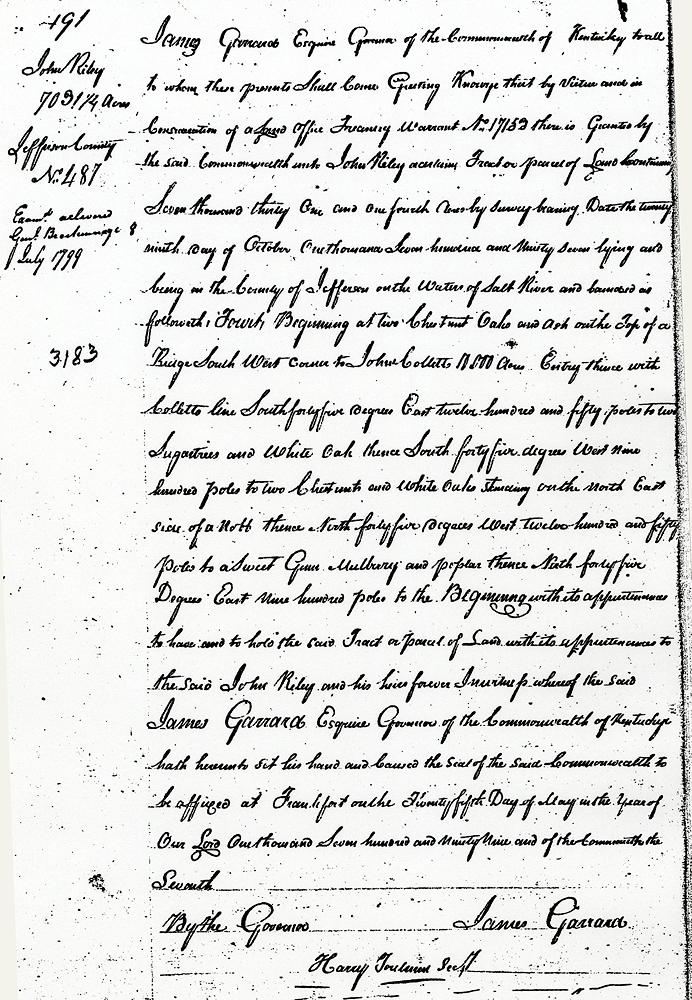 491
John Riley
7031 1/4 Acres
Jefferson County
No. 487
Examd. delivered
Genl. Breckinridge 8
July 1799
3183
James Garrard Esquire Governor of the Commonwealth of Kentucky to all
to whom these presents Shall Come Greeting Know ye that by Virtue and in
Consideration of a Land Office Treasury Warrant No. 17153 there is Granted by
the said Commonwealth unto John Riley a certain Tract or parcel of Land containing
Seven thousand thirty One and one fourth Acres by survey bearing Date the twenty
ninth day of October One thousand Seven hundred and Ninety Seven lying and
being in the County of Jefferson on the Waters of Salt River and bounded as
followeth; Towit, Beginning at two Chestnut Oaks and ash on the Top of a
Ridge South West corner to John Colletts Acres Entry thence with
Colletts line South forty five degrees East twelve hundred and fifty poles to two
Sugartrees and White Oak thence South forty five degrees West Nine
hundred poles to two Chestnuts and White Oaks standing on the North East
side of a Nobb thence North forty five degrees West Twelve hundred and fifty
Poles to a Sweet Gum Mulberry and poplar thence North forty five
Degrees East Nine hundred poles to the Beginning with its appurtenances
to have and to hold the said Tract or Parcel of Land with its appurtenances to
the said John Riley and his heirs forever In witness whereof the said
James Garrard Esquire Governor of the Commonwealth of Kentucky
hath hereunto set his hand and Caused the Seal of the said Commonwealth to
be affixed at Frankfort on the Twenty fifth Day of May in the Year of
Our Lord One thousand Seven hundred and Ninety Nine and of the Commonwth the
Seventh
By the Governor James Garrard
Harry Toulmin Secy